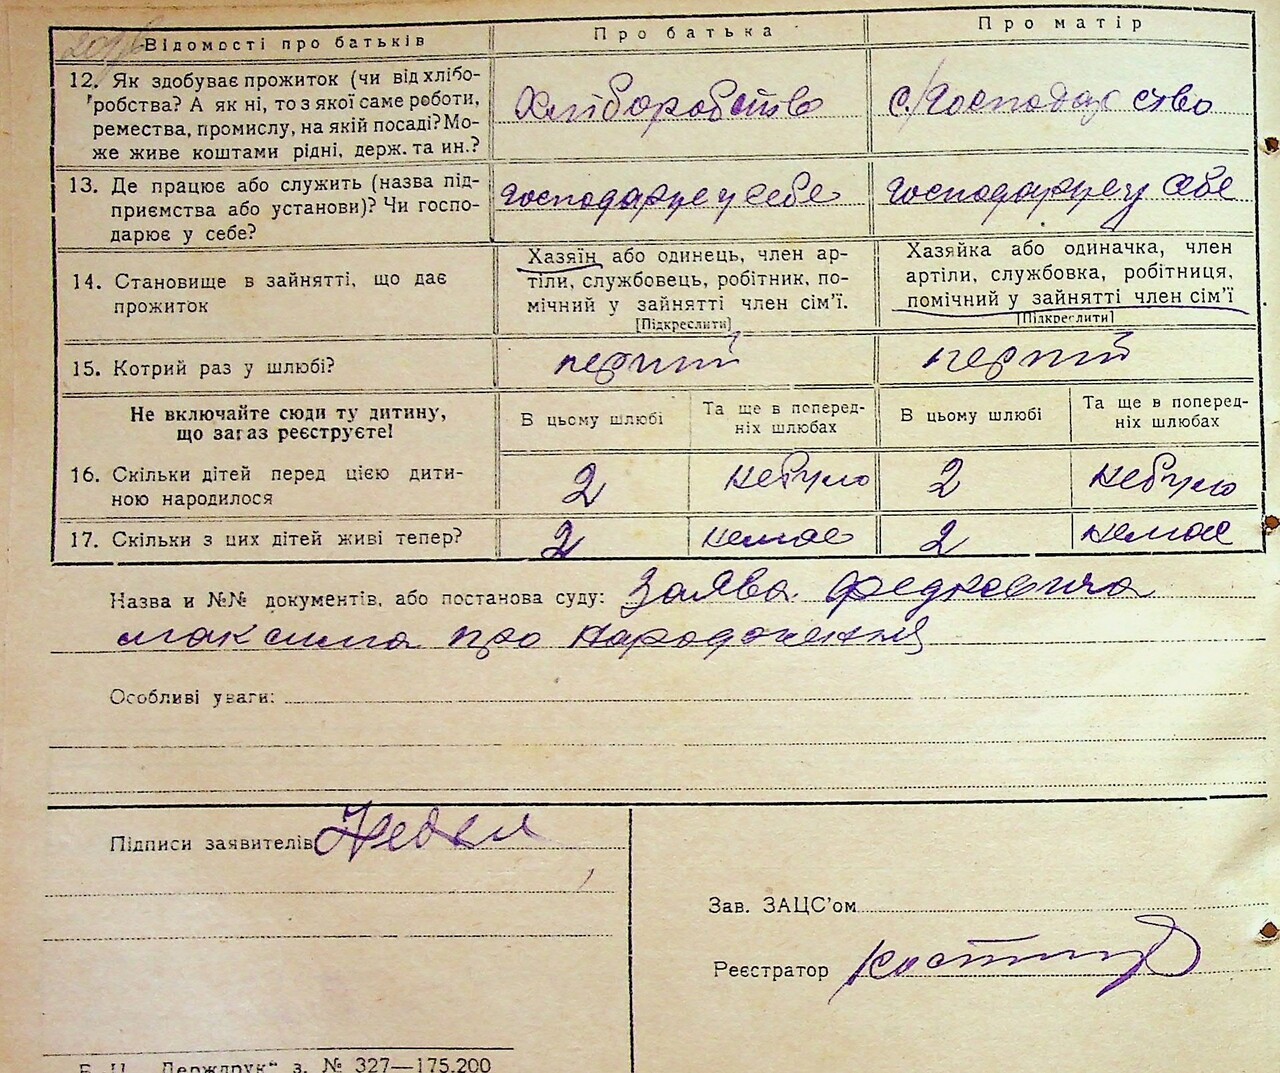 Відомості про батьків
Про батька
Про матір
12. Як здобуває прожиток (чи від хлібо-
робства? А як ні, то з якої саме роботи,
ремества, промислу, на якій посаді? Мо-
же живе коштами рідні, держ. та ин.?
Хліборобство
с./господарство
13. Де працює або служить (назва під-
приємства або установи)? Чи госпо-
дарює у себе?
господарює у себе
господарює у себе
14. Становище в зайнятті, що дає
прожиток
Хазяїн або одинець, член ар-
тіли, службовець, робітник, по-
мічний у зайнятті член сім'ї.
[Підкреслити]
Хазяйка або одиначка, член
артіли, службовка, робітниця,
помічний у зайнятті член сім'ї
[Підкреслити]
15. Котрий раз у шлюбі?
перший
перший
Не включайте сюди ту дитину,
що зараз реєструєте!
В цьому шлюбі
Та ще в поперед-
ніх шлюбах
В цьому шлюбі
Та ще в поперед-
ніх шлюбах
16. Скільки дітей перед цією дити-
ною народилося
2
небуло
2
небуло
17. Скільки з цих дітей живі тепер?
2
немає
2
немає
Назва и №№ документів, або постанова суду: Заява Федковича
максима про народження
Особливі уваги:
Підписи заявителів
Зав. ЗАЦС'ом
Реєстратор
„Держдрук“ з. № 327—175.200